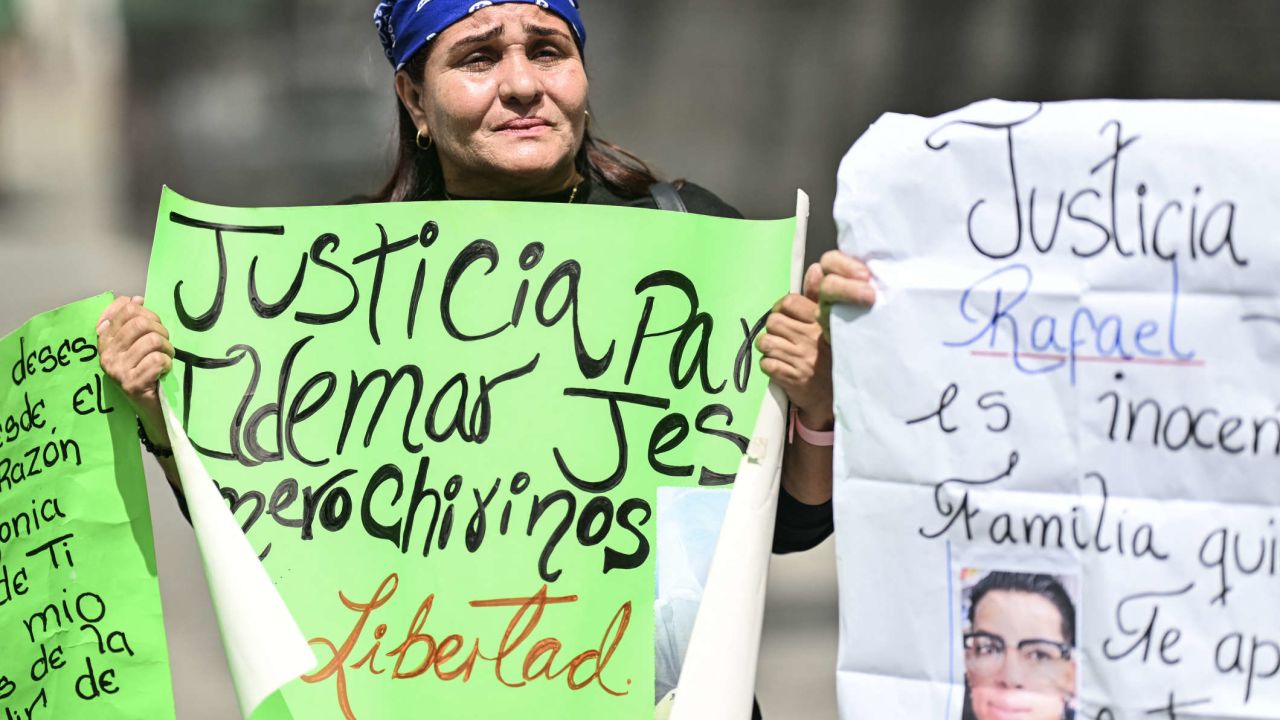 deses
esde EL
Razón
onia
de Ti
mio
de la
de
Justicia Par
Ildemar Jes
merochirinos
Libertad.
Justicia
Rafael
es inocen
Familia qui
Te ap